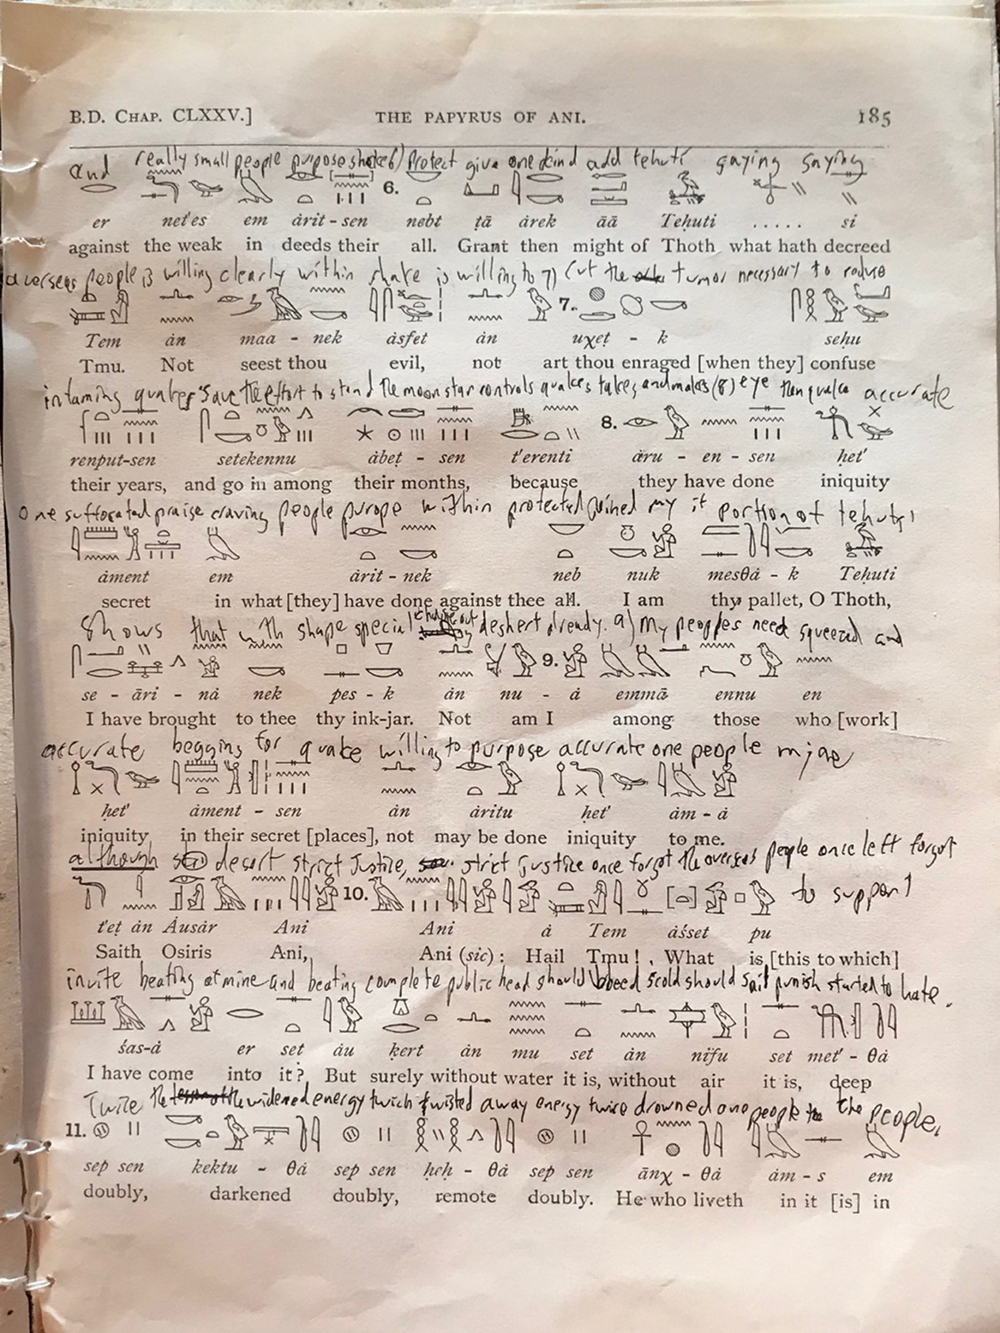 B.D. CHAP. CLXXV.] THE PAPYRUS OF ANI. 185
and really small people purpose shake6) Protect give one kind add tehuti saying saying
6.
er net'es em àrit-sen nebt ṭā àrek āā Teḥuti ..... si
against the weak in deeds their all. Grant then might of Thoth what hath decreed
overseas people is willing clearly within shake is willing to 7) cut the tumor necessary to reduce
7.
Tem àn maa-nek àsfet àn uχeṭ-k sehu
Tmu. Not seest thou evil, not art thou enraged [when they] confuse
in taming quakes save the effort to stand the moon star controls quakes takes and makes (8) eye then quakes accurate
8.
renput-sen setekennu àbeṭ-sen t'erenti àru-en-sen ḥet'
their years, and go in among their months, because they have done iniquity
One suffocated praise craving people purope within protected joined my it portion of tehuti
àment em àrit-nek neb nuk mesθà-k Teḥuti
secret in what [they] have done against thee all. I am thy pallet, O Thoth,
Shows that with shape special deshert already. 9) My peoples need squeezed and
9.
se-āri-nà nek pes-k àn nu-à emmā ennu en
I have brought to thee thy ink-jar. Not am I among those who [work]
accurate begging for quake willing to purpose accurate one people mine
ḥet' àment-sen àn àritu ḥet' àm-à
iniquity in their secret [places], not may be done iniquity to me.
although desert strict justice, strict justice once forgot the overseas people once left forgot
10. to support
t'eṭ àn Àusàr Ani Ani à Tem àśset pu
Saith Osiris Ani, Ani (sic): Hail Tmu!, What is [this to which]
invite beating at mine and beating complete public head should scold should punish started to hate.
śas-à er set àu ḳert àn mu set àn nifu set met'-θà
I have come into it? But surely without water it is, without air it is, deep
Twice the widened energy twich twisted away energy twice drowned one people the people.
11.
sep sen kektu-θà sep sen ḥeḥ-θà sep sen ānχ-θà àm-s em
doubly, darkened doubly, remote doubly. He who liveth in it [is] in